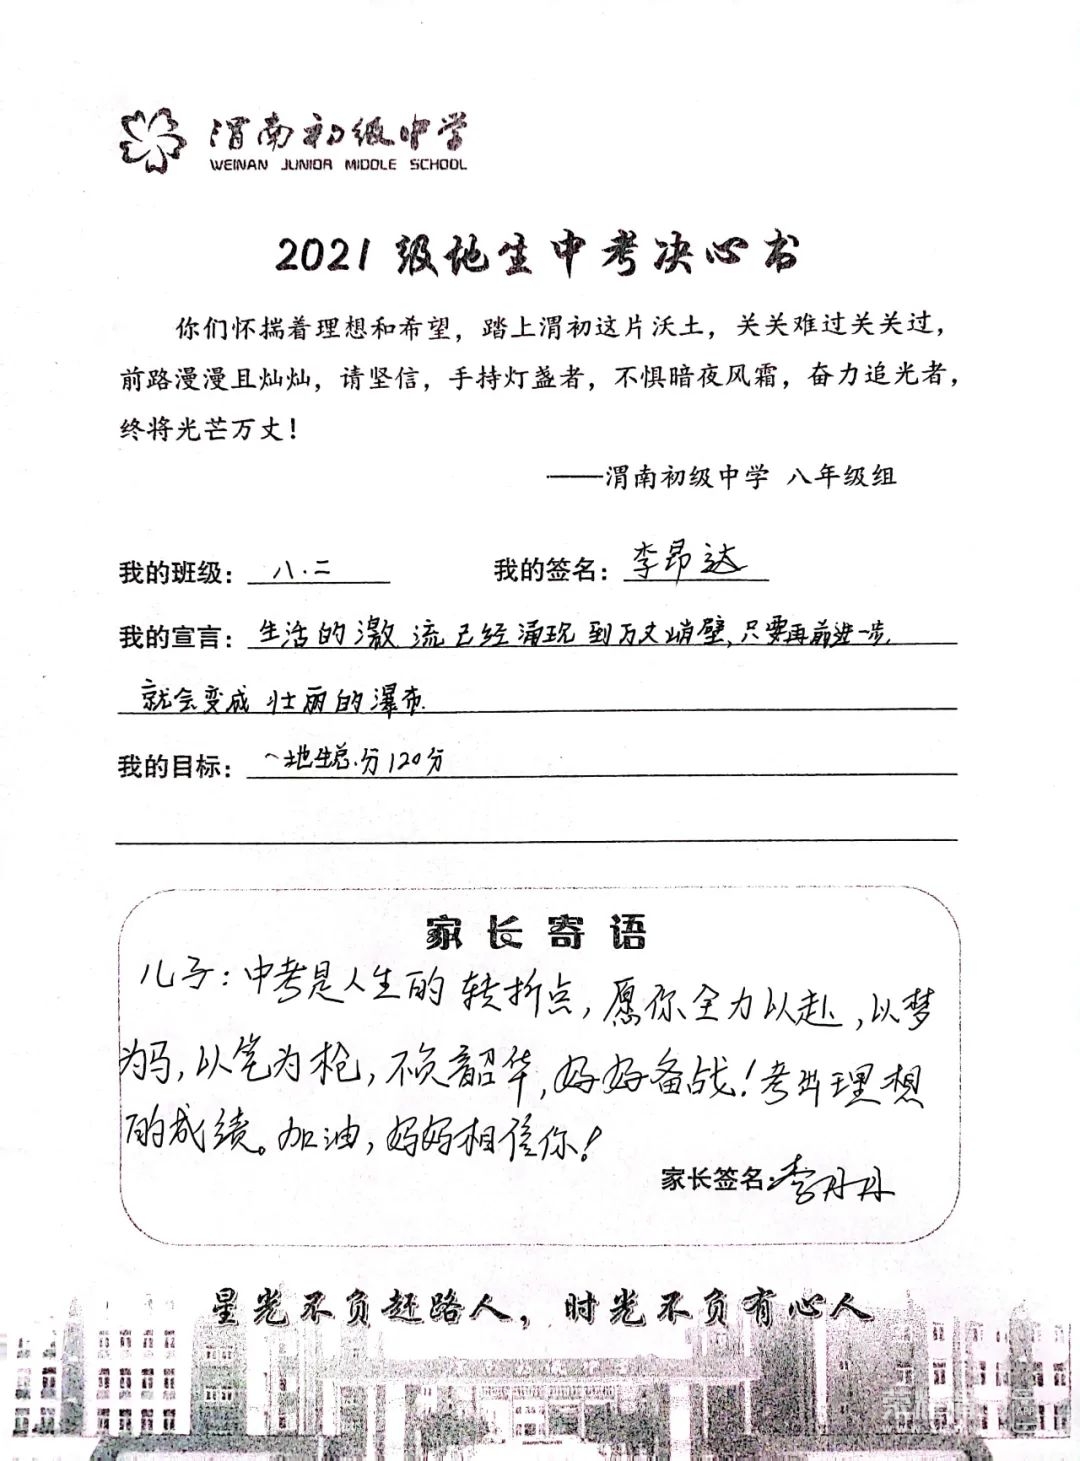 渭南初级中学
WEINAN JUNIOR MIDDLE SCHOOL
2021级地生中考决心书
你们怀揣着理想和希望，踏上渭初这片沃土，关关难过关关过，
前路漫漫且灿灿，请坚信，手持灯盏者，不惧暗夜风霜，奋力追光者，
终将光芒万丈！
——渭南初级中学 八年级组
我的班级：八.二 我的签名：李昂达
我的宣言：生活的激流已经涌现到万丈峭壁，只要再前进一步，
就会变成壮丽的瀑布.
我的目标：地生总分120分
家长寄语
儿子：中考是人生的转折点，愿你全力以赴，以梦
为马，以笔为枪，不负韶华，好好备战！考出理想
的成绩。加油，妈妈相信你！
家长签名：李丹丹
星光不负赶路人，时光不负有心人